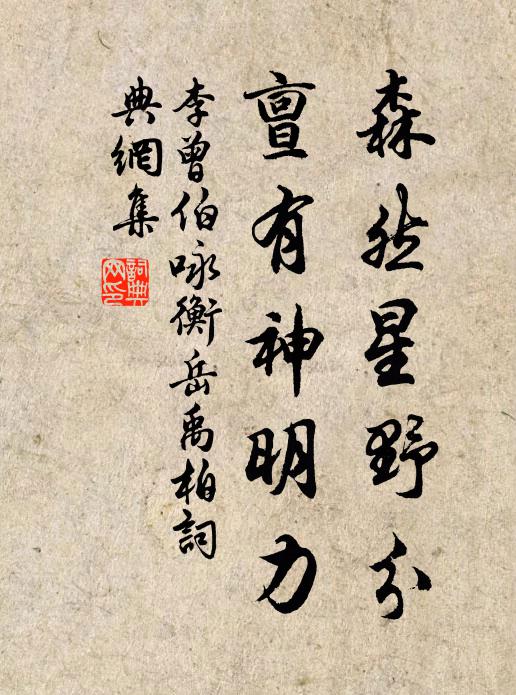 森然星野分
亶有神明力
李曾伯咏衡岳禹柏詞
典網集
詞典网印